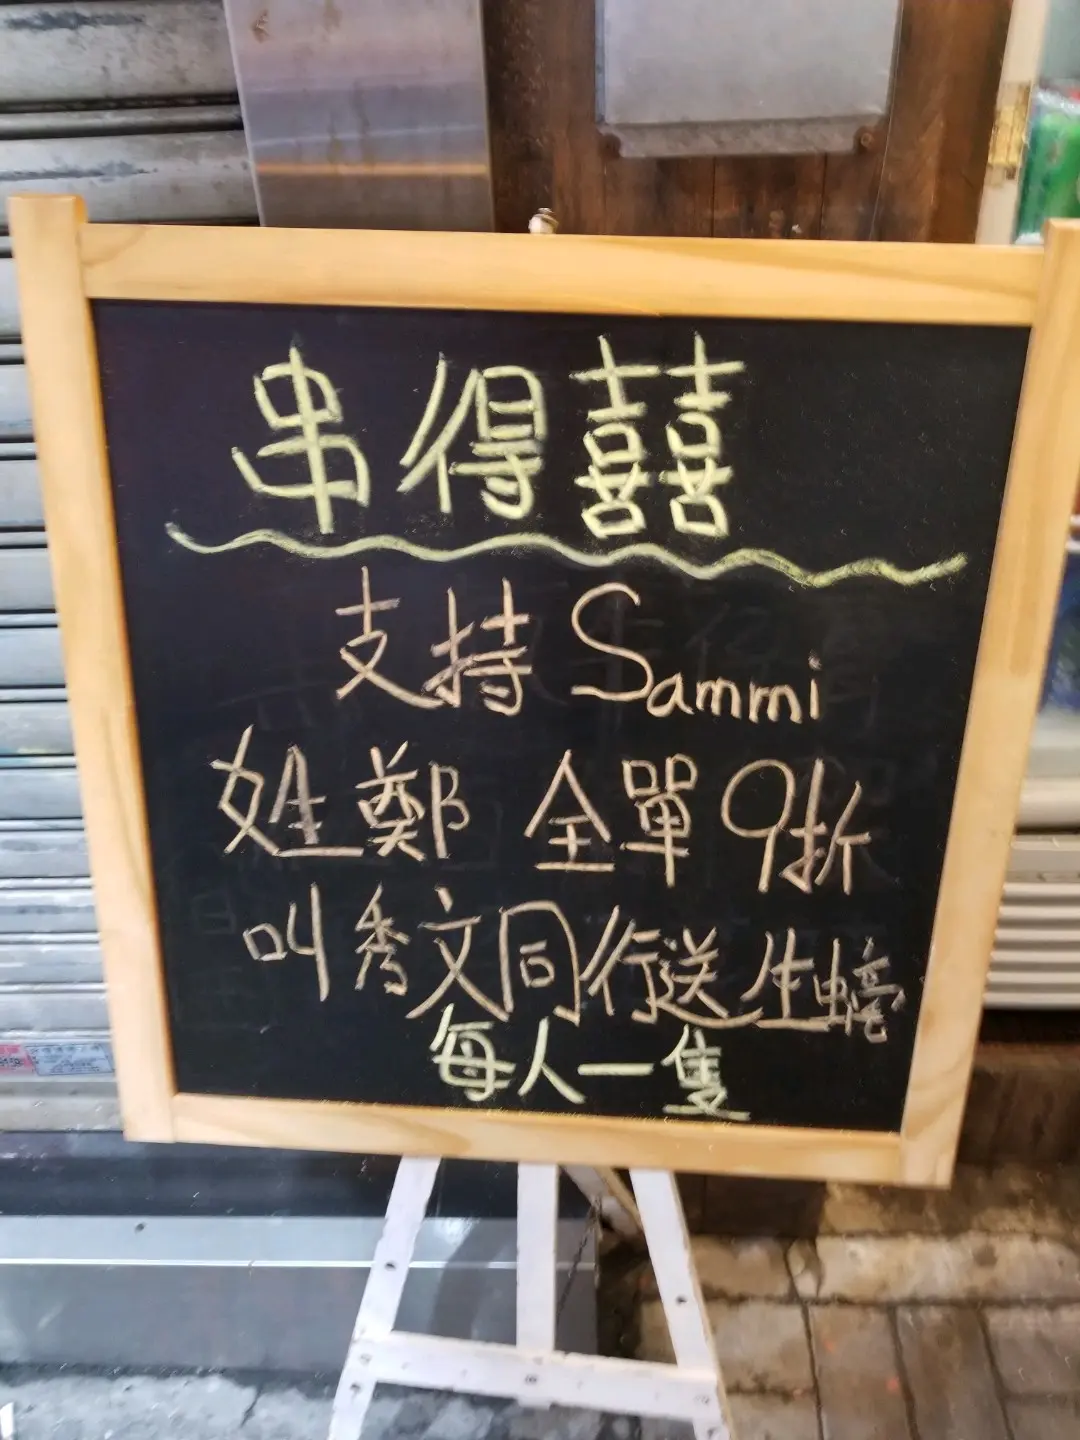 串得囍
支持 Sammi
姓鄭 全單9折
叫秀文同行送生蠔
每人一隻